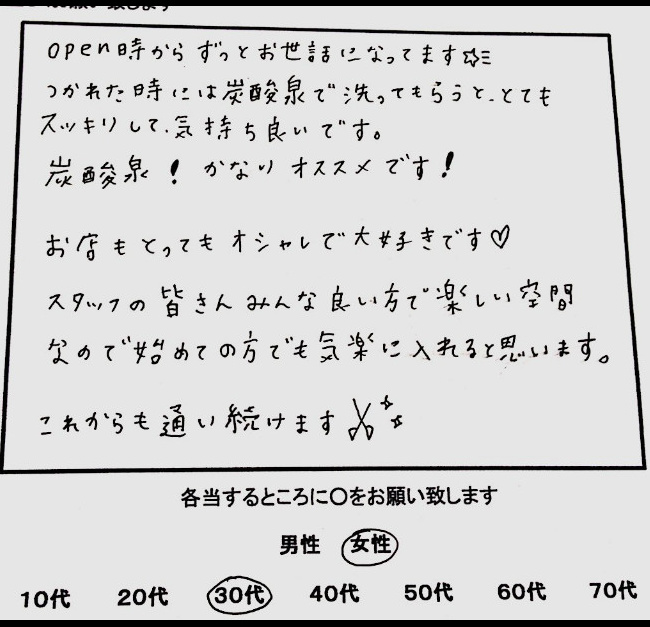 open時からずっとお世話になってます☆ミ
つかれた時には炭酸泉で洗ってもらうと、とても
スッキリして、気持ち良いです。
炭酸泉！かなりオススメです！
お店もとってもオシャレで大好きです♡
スタッフの皆さんみんな良い方で楽しい空間
なので始めての方でも気楽に入れると思います。
これからも通い続けます✂
各当するところに〇をお願い致します
男性 女性
10代 20代 30代 40代 50代 60代 70代